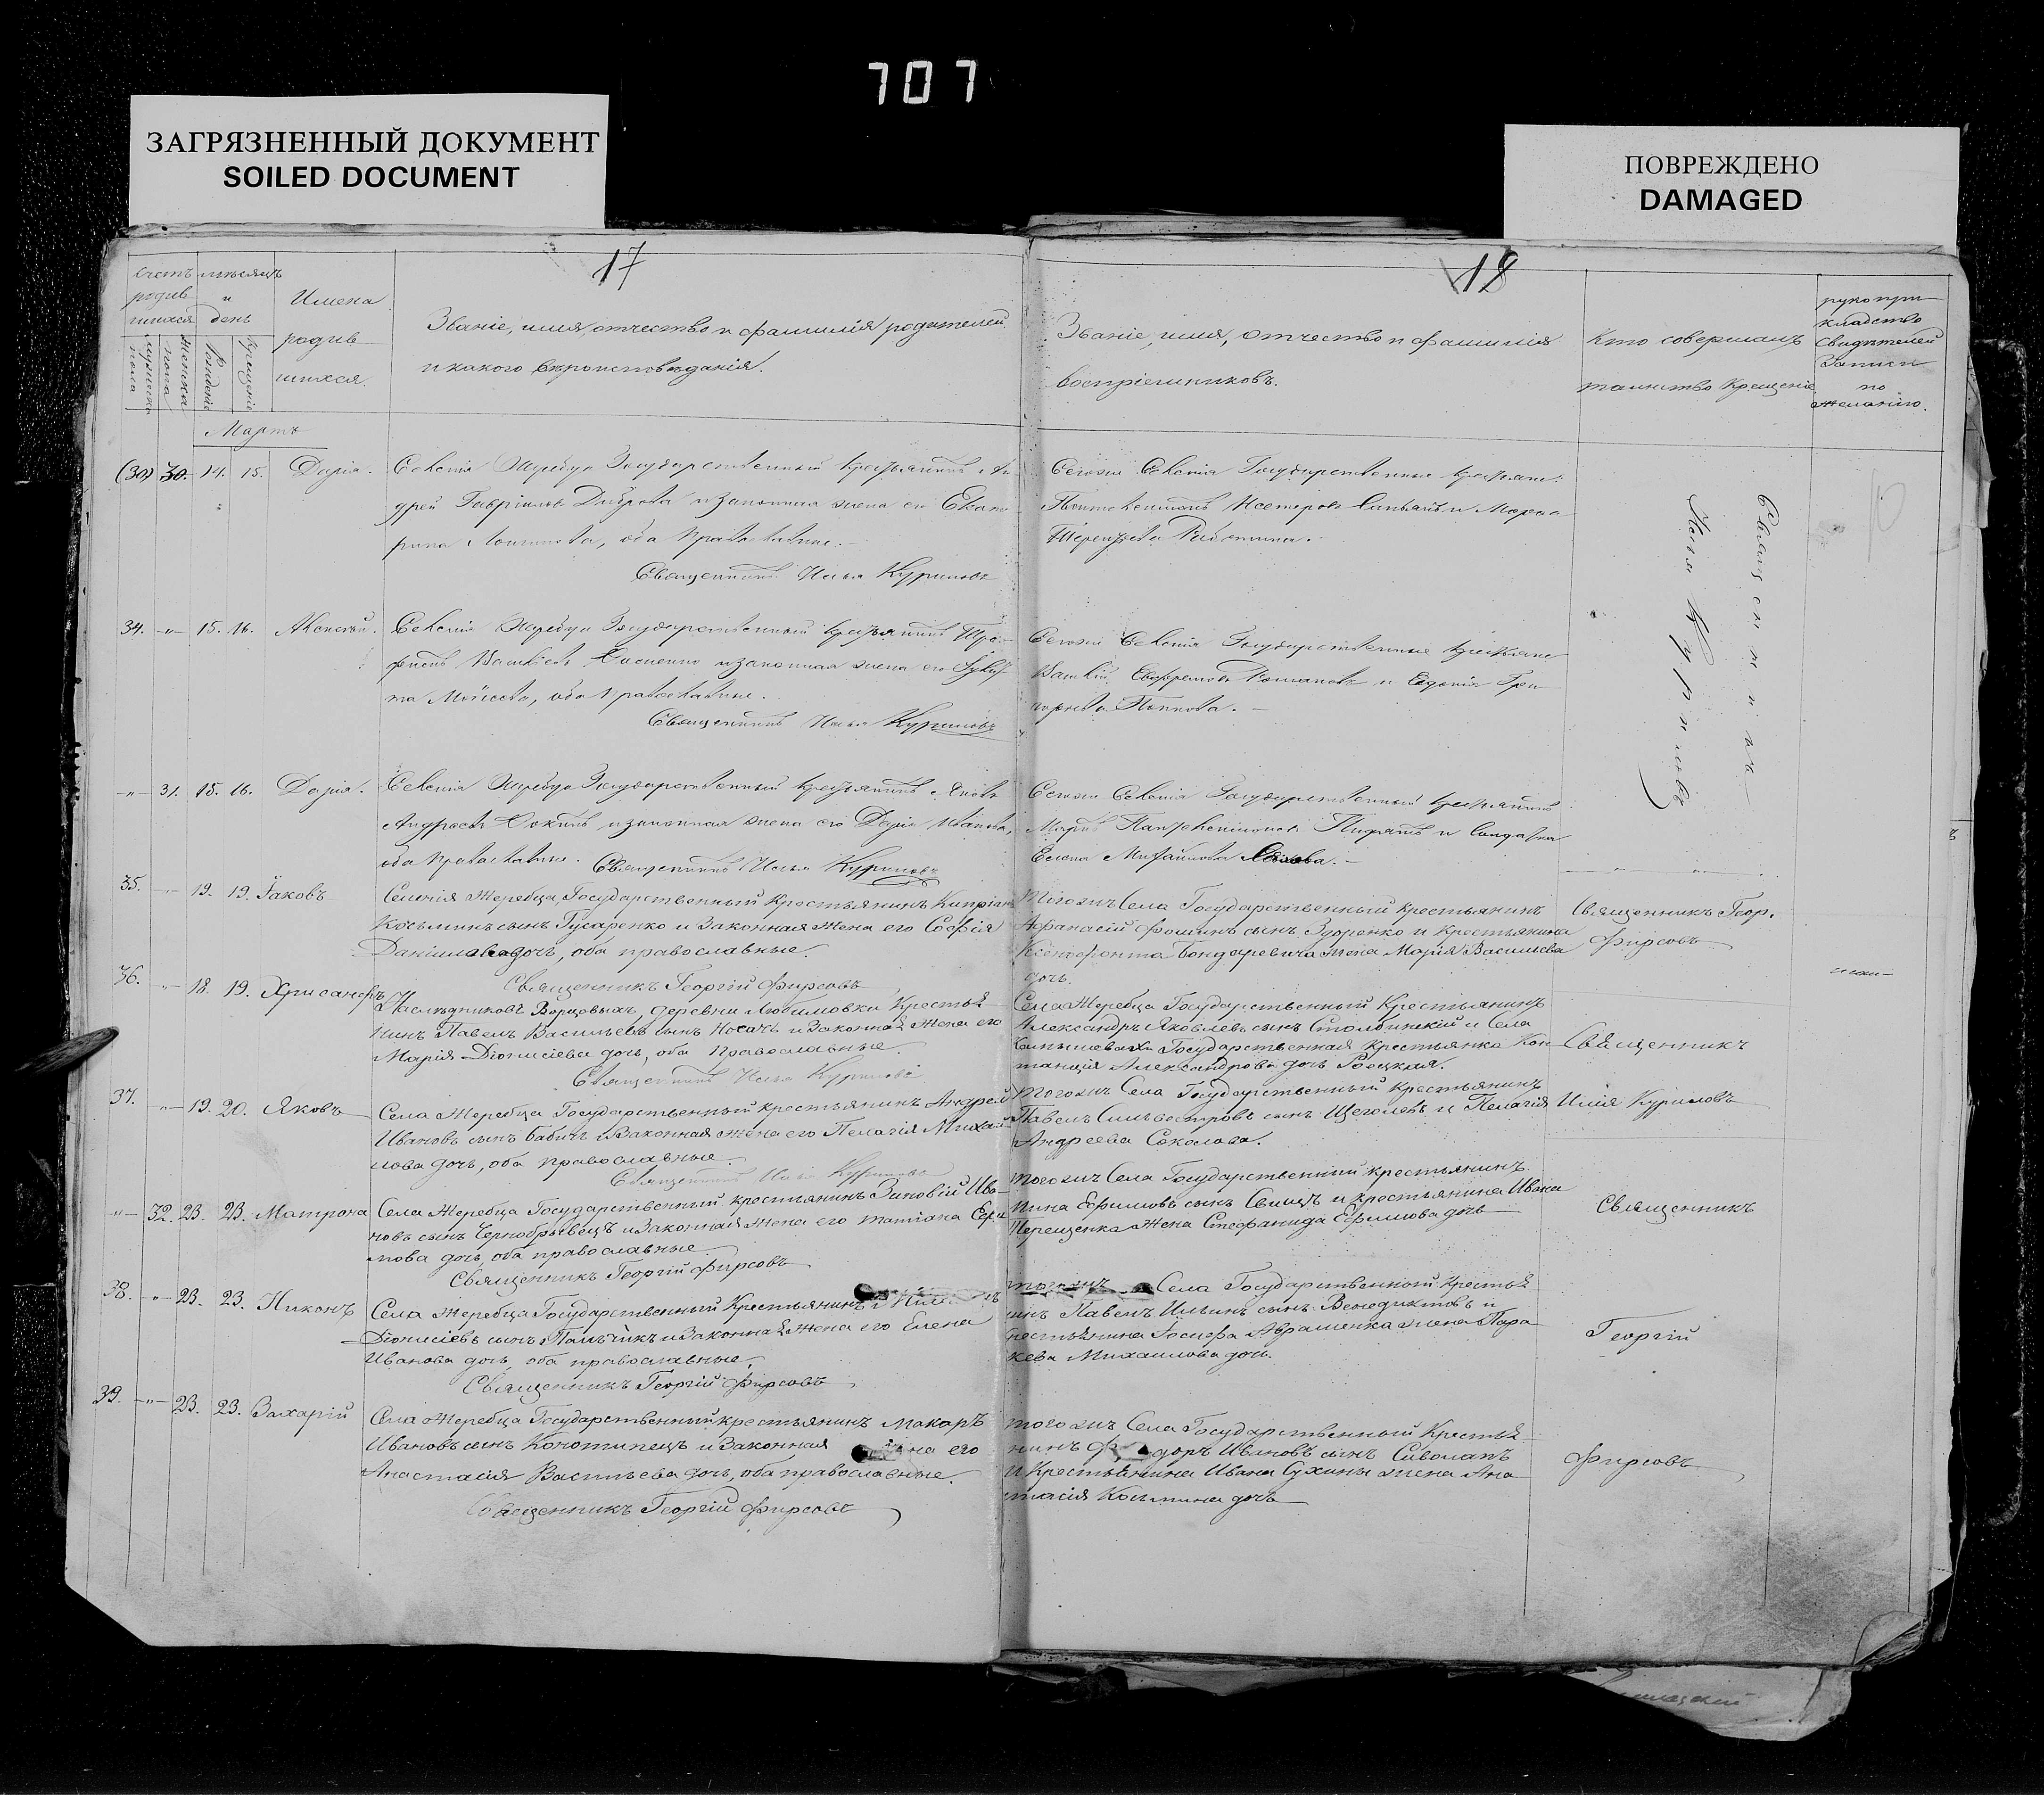 707
ЗАГРЯЗНЕННЫЙ ДОКУМЕНТ
SOILED DOCUMENT
ПОВРЕЖДЕНО
DAMAGED
17
Счетъ родившихся
мужеска пола
женска пола
мѣсяцъ и день
Рожденія
Крещенія
Имена родившихся.
Званіе, имя, отчество и фамилія родителей,
и какого вѣроисповѣданія.
Мартъ
30. 14. 15. Дарія.
Селенія Жеребца Государственный крестьянинъ Ан
дрей Гавріиловъ Диброва и законная жена его Екате
рина Логинова, оба православные.
Священникъ Илья Куриловъ
34. 15. 16. Алексѣй.
Селенія Жеребца Государственный крестьянинъ
и законная жена его
оба православные.
Священникъ Илья Куриловъ
31. 15. 16. Дарія.
Селенія Жеребца Государственный крестьянинъ Яковъ
Андреевъ и законная жена его Дарія Иванова,
оба православные. Священникъ Илья Куриловъ
35. 19. 19. Іаковъ
Селенія Жеребца, Государственный Крестьянинъ Кипріанъ
Косьминъ сынъ Гусаренко и Законная жена его Софія
Даніилова дочь, оба православные.
Священникъ Георгій Фирсовъ
36. 18. 19. Хрисанфъ
Наслѣдниковъ деревни Любимовки Крестья
нинъ Павелъ Васильевъ сынъ Носачъ и Законная Жена его
Марія Діонисіева дочь, оба Православные.
Священникъ Илья Куриловъ
37. 19. 20. Яковъ
Села Жеребца Государственный крестьянинъ Андрей
Ивановъ сынъ Бабичъ и Законная жена его Пелагія Михаи
лова дочь, оба православные.
Священникъ Илья Куриловъ
32. 23. 23. Матрона
Села Жеребца Государственный крестьянинъ Зиновій Ива
новъ сынъ Чернобрывецъ и Законная жена его Татіана Ефи
мова дочь, оба православные.
Священникъ Георгій Фирсовъ
38. 23. 23. Никонъ
Села Жеребца Государственный Крестьянинъ
Діонисіевъ сынъ и Законная Жена его Елена
Иванова дочь, оба православные.
Священникъ Георгій Фирсовъ
39. 23. 23. Захарій
Села Жеребца Государственный крестьянинъ Макаръ
Ивановъ сынъ Конотипецъ и Законная жена его
Анастасія Васильева дочь, оба православные.
Священникъ Георгій Фирсовъ
18
Званіе, имя, отчество и фамилія
воспріемниковъ.
Кто совершалъ
таинство Крещенія
рукопри
кладство
свидѣтелей
записи
по
желанію.
Тогожъ Селенія Государственные крестьяне:
и Марѳа
Терентьева
Тогожъ Селенія Государственные крестьяне
Романовъ и Евдокія Гри
горьева Попкова.
Тогожъ Селенія Государственный крестьянинъ
Марко и солдатка
Елена Михайлова
Священникъ
Илья Куриловъ
Тогожъ Села Государственный крестьянинъ
Афанасій Фоминъ сынъ Здоренко и крестьянина
Ксенофонта Бондаревича жена Марія Васильева
дочь.
Священникъ Геор.
Фирсовъ
Села Жеребца Государственный Крестьянинъ
Александръ Яковлевъ сынъ Столбинскій и Села
Государственная крестьянка Кон
станція Александрова дочь Роецкая.
Священникъ
Тогожъ Села Государственный крестьянинъ
Павелъ Сильвестровъ сынъ Щеголевъ и Пелагія
Андреева Соколова.
Илія Куриловъ
Тогожъ Села Государственный крестьянинъ
Пина Ефимовъ сынъ и крестьянина Ивана
Перещенка Жена Стефанида Ефимова дочь
Священникъ
Тогожъ Села Государственный Крестья
нинъ Павелъ Ильинъ сынъ Венедиктовъ и
крестьянина Іосифа Авраменка жена Пара
кева Михаилова дочь.
Георгій
Тогожъ Села Государственный Крестья
нинъ Ф доръ Ивановъ сынъ Сиволапъ
и Крестьянина Ивана Сухины жена Ана
стасія Косьмина дочь
Фирсовъ